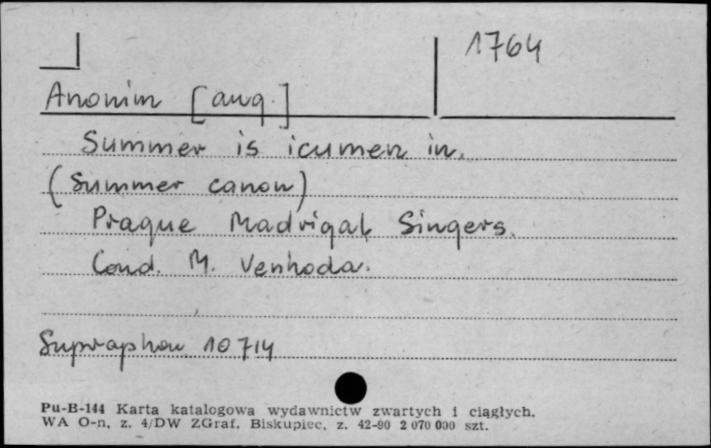 1764
Anonim [ang.]
Summer is icumen in.
(Summer canon)
Prague Madrigal Singers.
Cond. M. Venhoda.
Supraphon 10714
Pu-B-144 Karta katalogowa wydawnictw zwartych i ciągłych.
WA O-n, z. 4/DW ZGraf. Biskupiec, z. 42-90 2 070 000 szt.